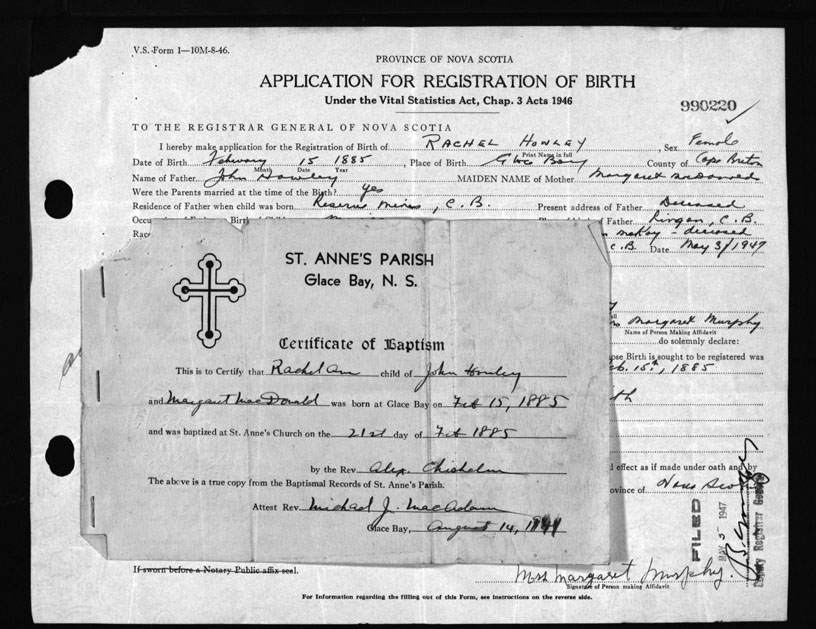 V.S. Form 1—10M-8-46.
PROVINCE OF NOVA SCOTIA
APPLICATION FOR REGISTRATION OF BIRTH
Under the Vital Statistics Act, Chap. 3 Acts 1946
990220
TO THE REGISTRAR GENERAL OF NOVA SCOTIA
I hereby make application for the Registration of Birth of RACHEL HOWLEY, Sex Female
Print Name in full
Date of Birth February 15 1885, Place of Birth Glace Bay County of Cape Breton
Month Date Year
Name of Father John Howley MAIDEN NAME of Mother Margaret McDonald
Were the Parents married at the time of the Birth? yes
Residence of Father when child was born Reserve Mines, C.B. Present address of Father Deceased
Father Lingan, C.B.
McKay - deceased
C.B. Date May 3/1947
ST. ANNE'S PARISH
Glace Bay, N. S.
Certificate of Baptism
This is to Certify that Rachel Ann child of John Howley
and Margaret MacDonald was born at Glace Bay on Feb 15, 1885
and was baptized at St. Anne's Church on the 21st day of Feb 1885
by the Rev. Alex. Chisholm
The above is a true copy from the Baptismal Records of St. Anne's Parish.
Attest Rev. Michael J. MacAdam
Glace Bay, August 14, 1941
Margaret Murphy
Name of Person Making Affidavit
do solemnly declare:
Birth is sought to be registered was
Feb. 15th, 1885
effect as if made under oath and by
Province of Nova Scotia
FILED
MAY 5 1947
Deputy Registrar General
If sworn before a Notary Public affix seal.
Mrs Margaret Murphy.
Signature of Person making Affidavit
For Information regarding the filling out of this Form, see instructions on the reverse side.